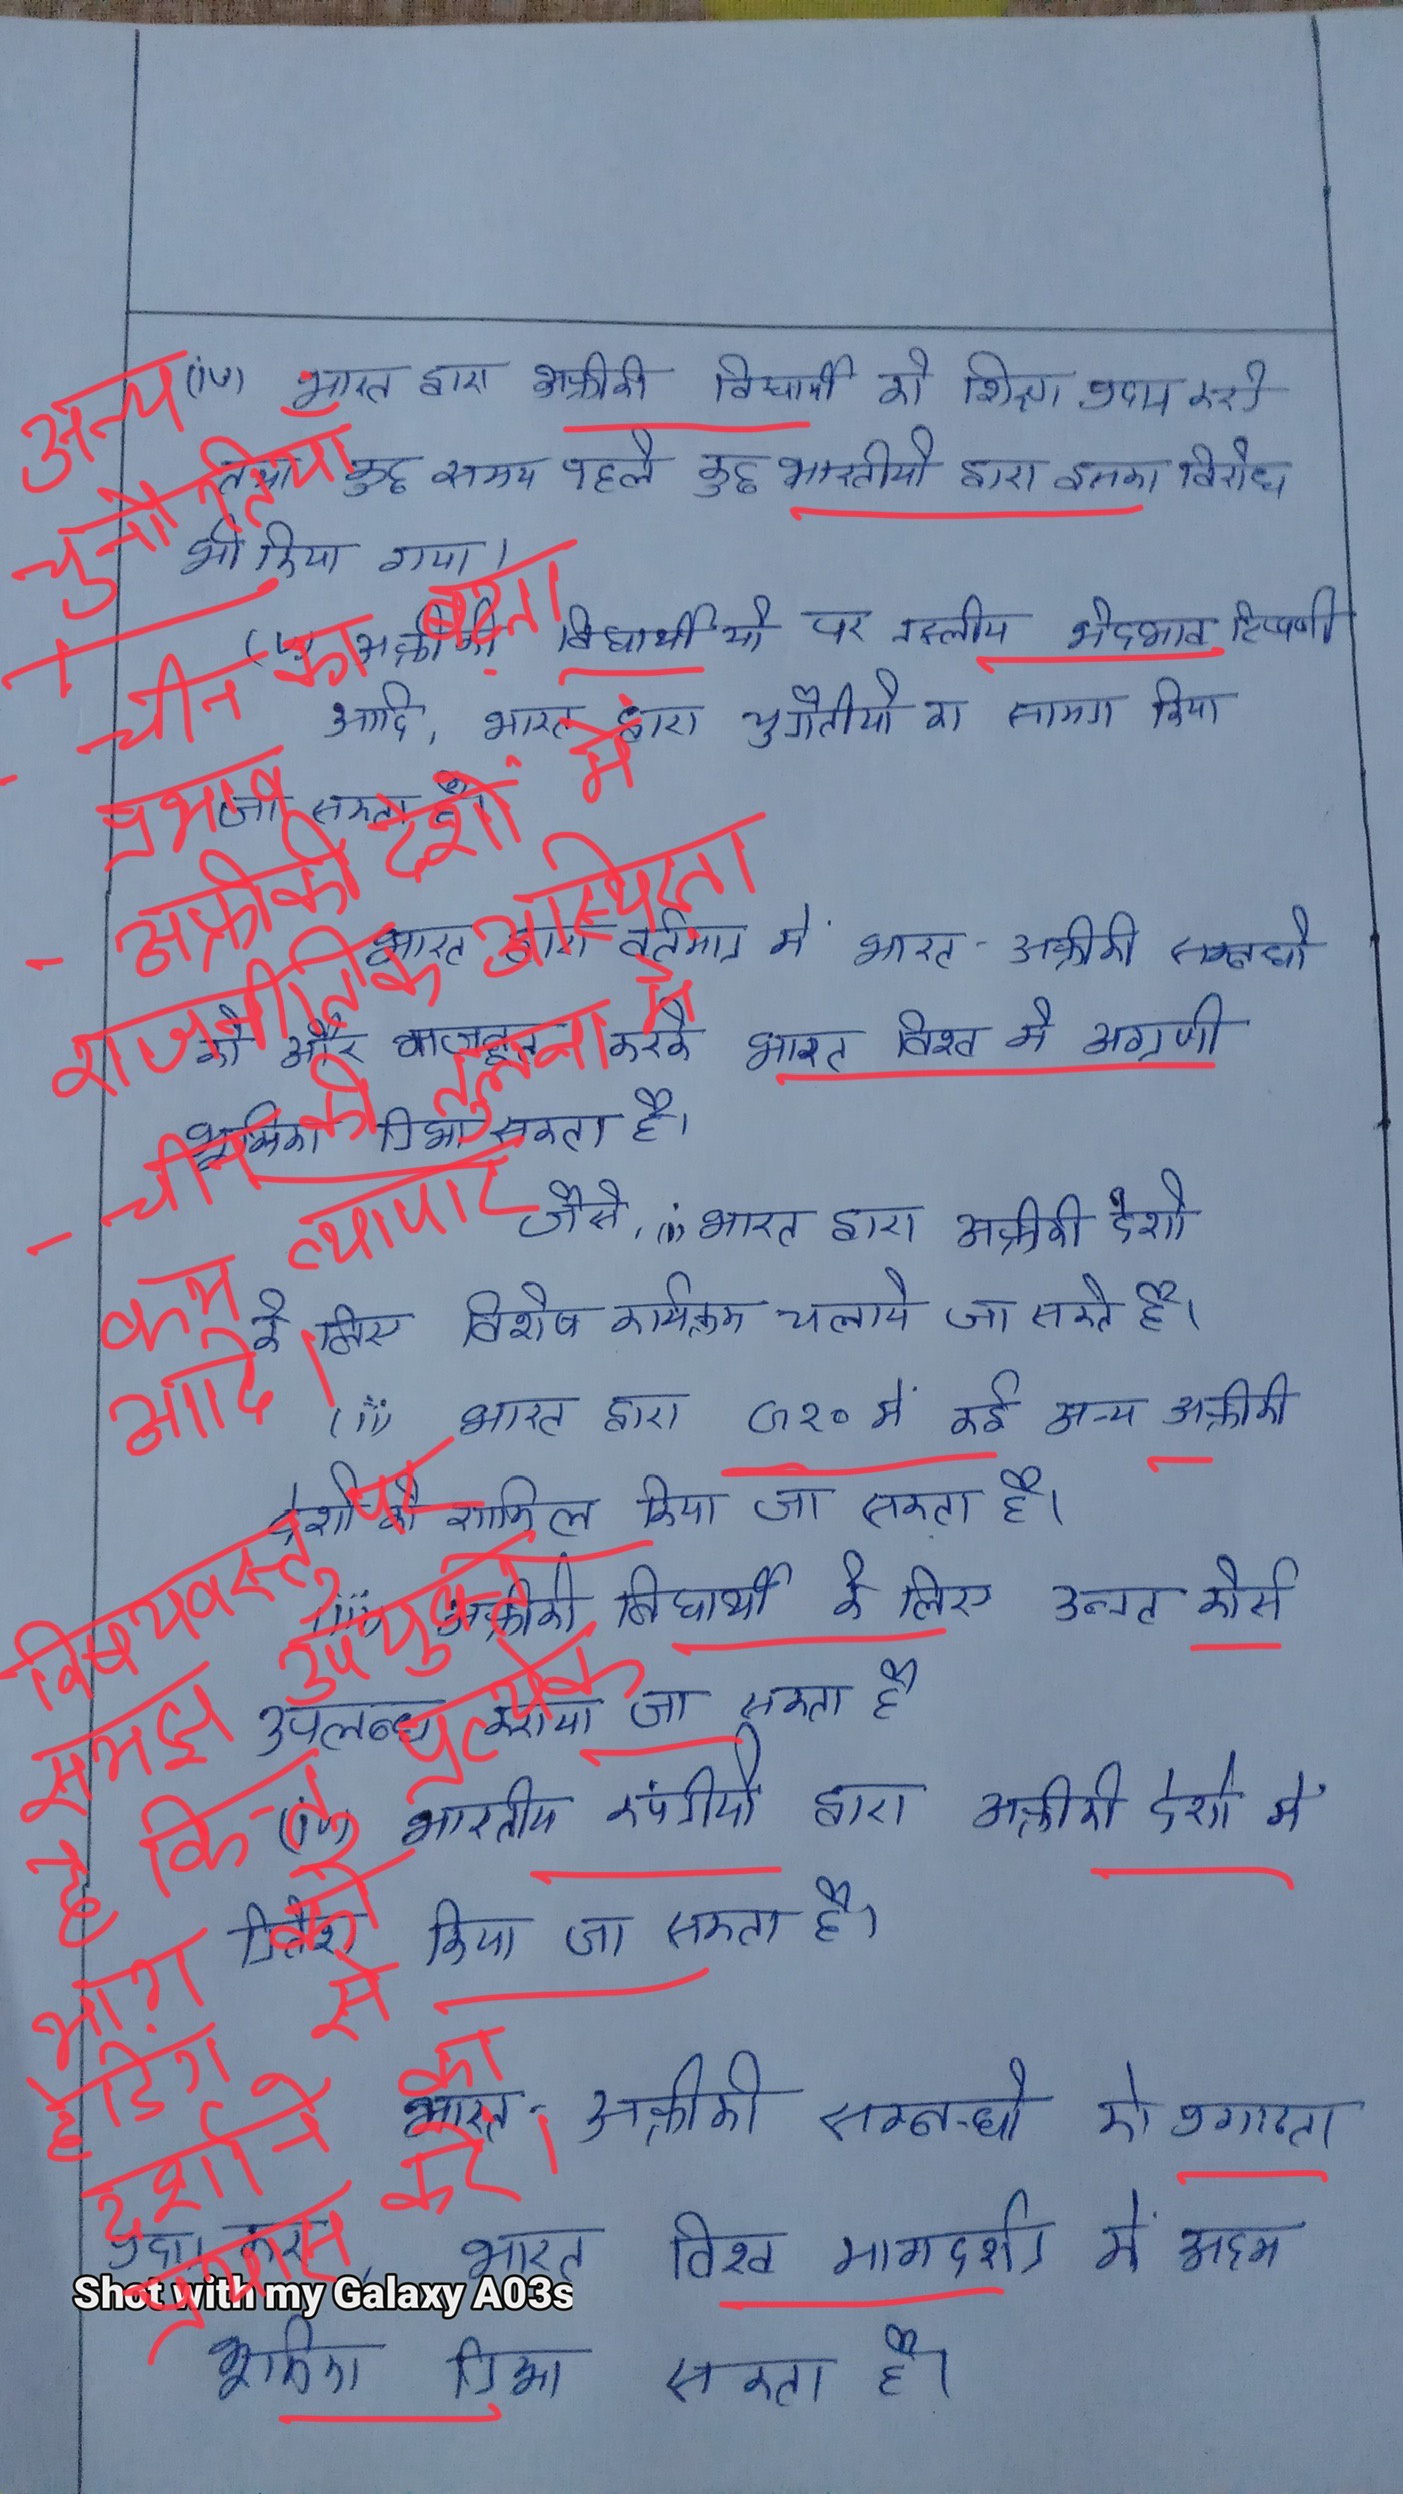 (iv) भारत द्वारा अफ्रीकी विद्यार्थी को शिक्षा प्रदान करने
तथा कुछ समय पहले कुछ भारतीयों द्वारा इसका विरोध
भी किया गया।
(v) अफ्रीकी विद्यार्थीयों पर नस्लीय भेदभाव टिप्पणी
आदि, भारत द्वारा चुनौतीयों का सामना किया
जा सकता है।
भारत द्वारा वर्तमान में भारत-अफ्रीकी सम्बन्धो
को और मजबूत करके भारत विश्व में अग्रणी
भूमिका निभा सकता है।
जैसे, (i) भारत द्वारा अफ्रीकी देशो
के लिए विशेष कार्यक्रम चलाये जा सकते हैं।
(ii) भारत द्वारा G20 में कई अन्य अफ्रीकी
देशो को शामिल किया जा सकता है।
(iii) अफ्रीकी विद्यार्थी के लिए उन्नत कोर्स
उपलब्ध कराया जा सकता है
(iv) भारतीय कंपनीयों द्वारा अफ्रीकी देशो में
निवेश किया जा सकता है।
भारत-अफ्रीकी सम्बन्धो को प्रगाढता
प्रदान करना, भारत विश्व मागदर्शन में अहम
भूमिका निभा सकता है।
अन्य
चुनौतियाँ
- चीन का बढ़ता
प्रभाव
- अफ्रीकी देशों में
राजनीतिक अस्थिरता
- चीन की तुलना में
कम व्यापार
आदि।
विषयवस्तु पर
समझ उपयुक्त
है किन्तु प्रत्येक
भाग को
हेडिंग से
दर्शाने का
प्रयास करें।
Shot with my Galaxy A03s